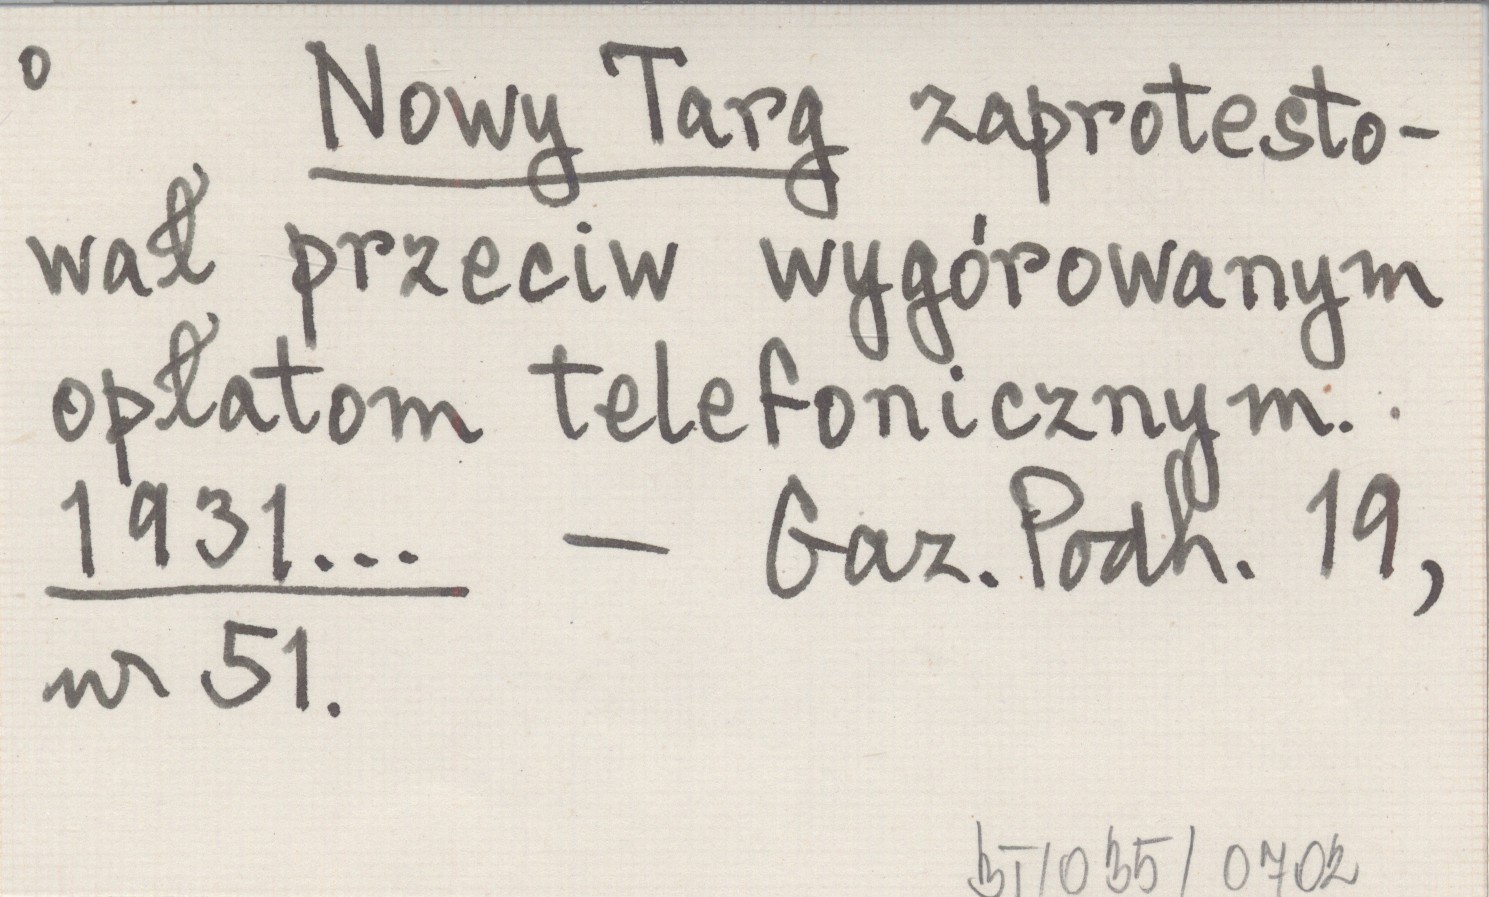 o Nowy Targ zaprotesto-
wał przeciw wygórowanym
opłatom telefonicznym.
1931... — Gaz. Podh. 19,
nr 51.
/035/0702